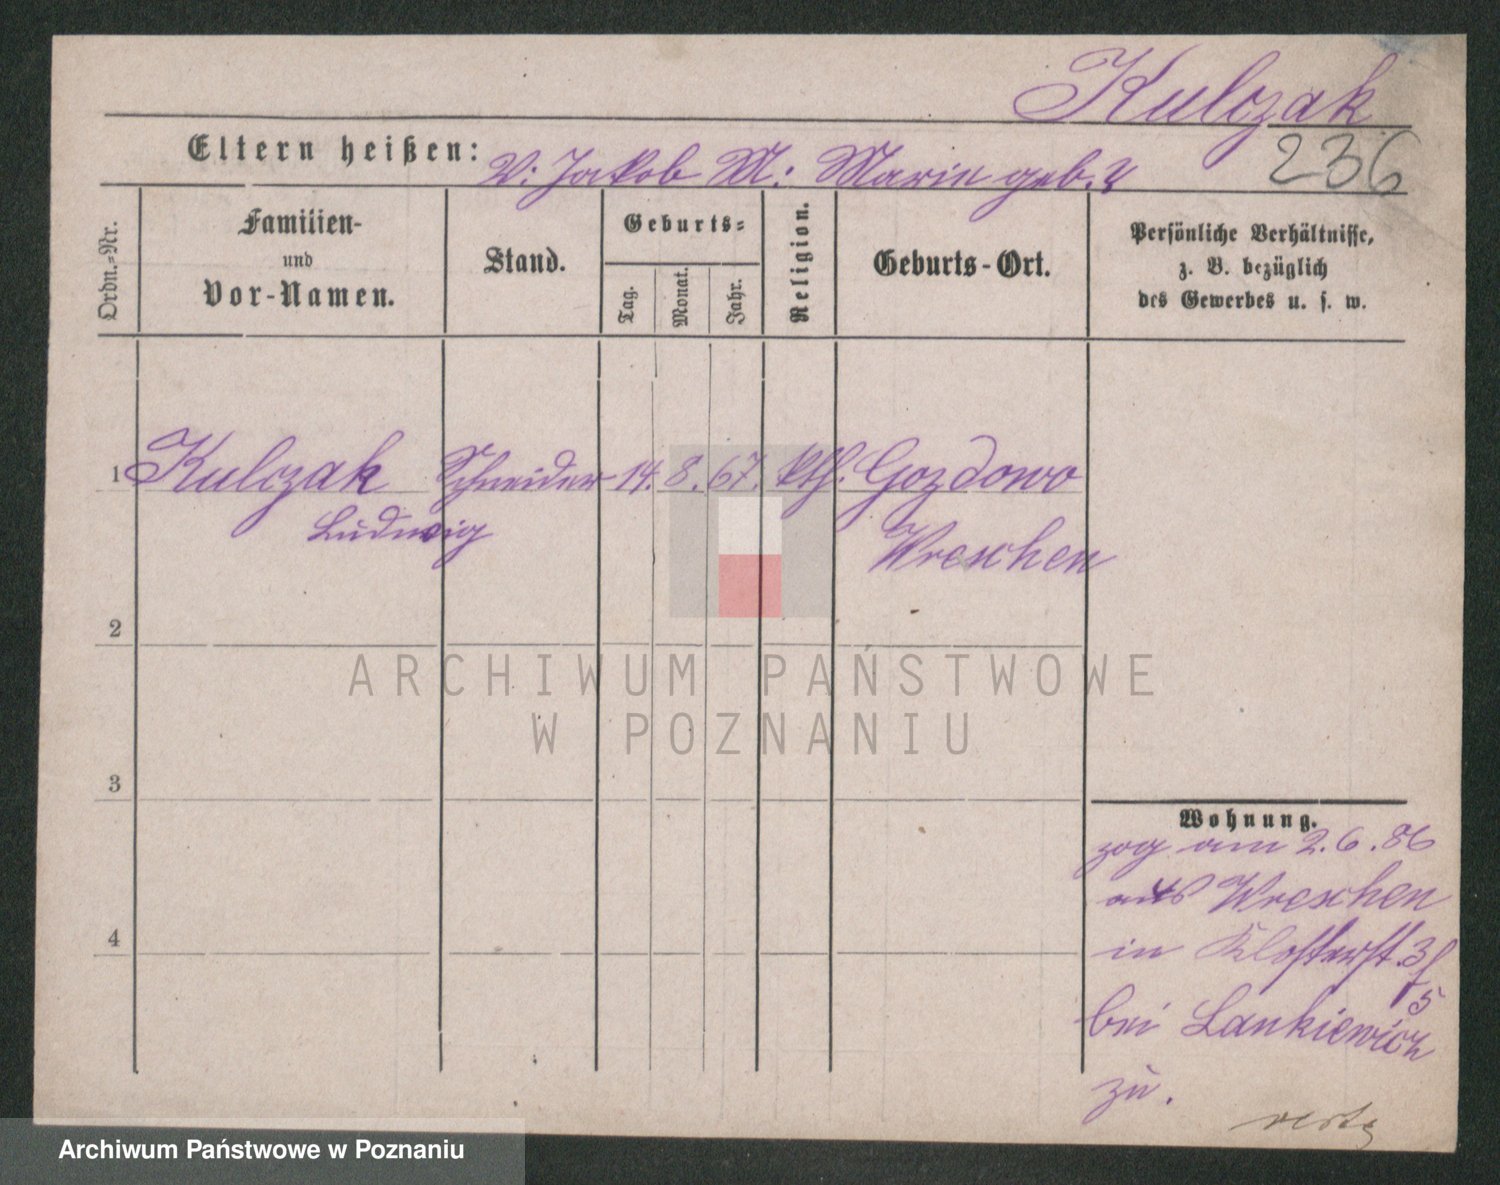 Kulczak
Eltern heißen: V: Jakob M: Marie geb. ?
236
Ordn.=Nr.
Familien-
und
Vor-Namen.
Stand.
Geburts=
Tag.
Monat.
Jahr.
Religion.
Geburts-Ort.
Persönliche Verhältnisse,
z. B. bezüglich
des Gewerbes u. s. w.
1 Kulczak Schneider 14. 8. 67. kth. Gozdowo
Ludwig Wreschen
2
3
4
Wohnung.
zog am 2.6.86
aus Wreschen
in Klosterst. 3/5
bei Lankiewicz
zu.
ARCHIWUM PAŃSTWOWE
W POZNANIU
Archiwum Państwowe w Poznaniu